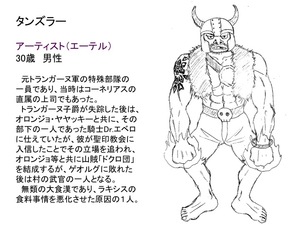 タンズラー
アーティスト（エーテル）
30歳　男性
元トランガーヌ軍の特殊部隊の
一員であり、当時はコーネリアスの
直属の上司でもあった。
トランガーヌ子爵が失踪した後は、
オロンジョ・ヤヤッキーと共に、その
部下の一人であった騎士Dr.エベロ
に仕えていたが、彼が聖印教会に
入信したことでその立場を追われ、
オロンジョ等と共に山賊「ドクロ団」
を結成するが、ゲオルグに敗れた
後は村の武官の一人となる。
無類の大食漢であり、ラキシスの
食料事情を悪化させた原因の１人。